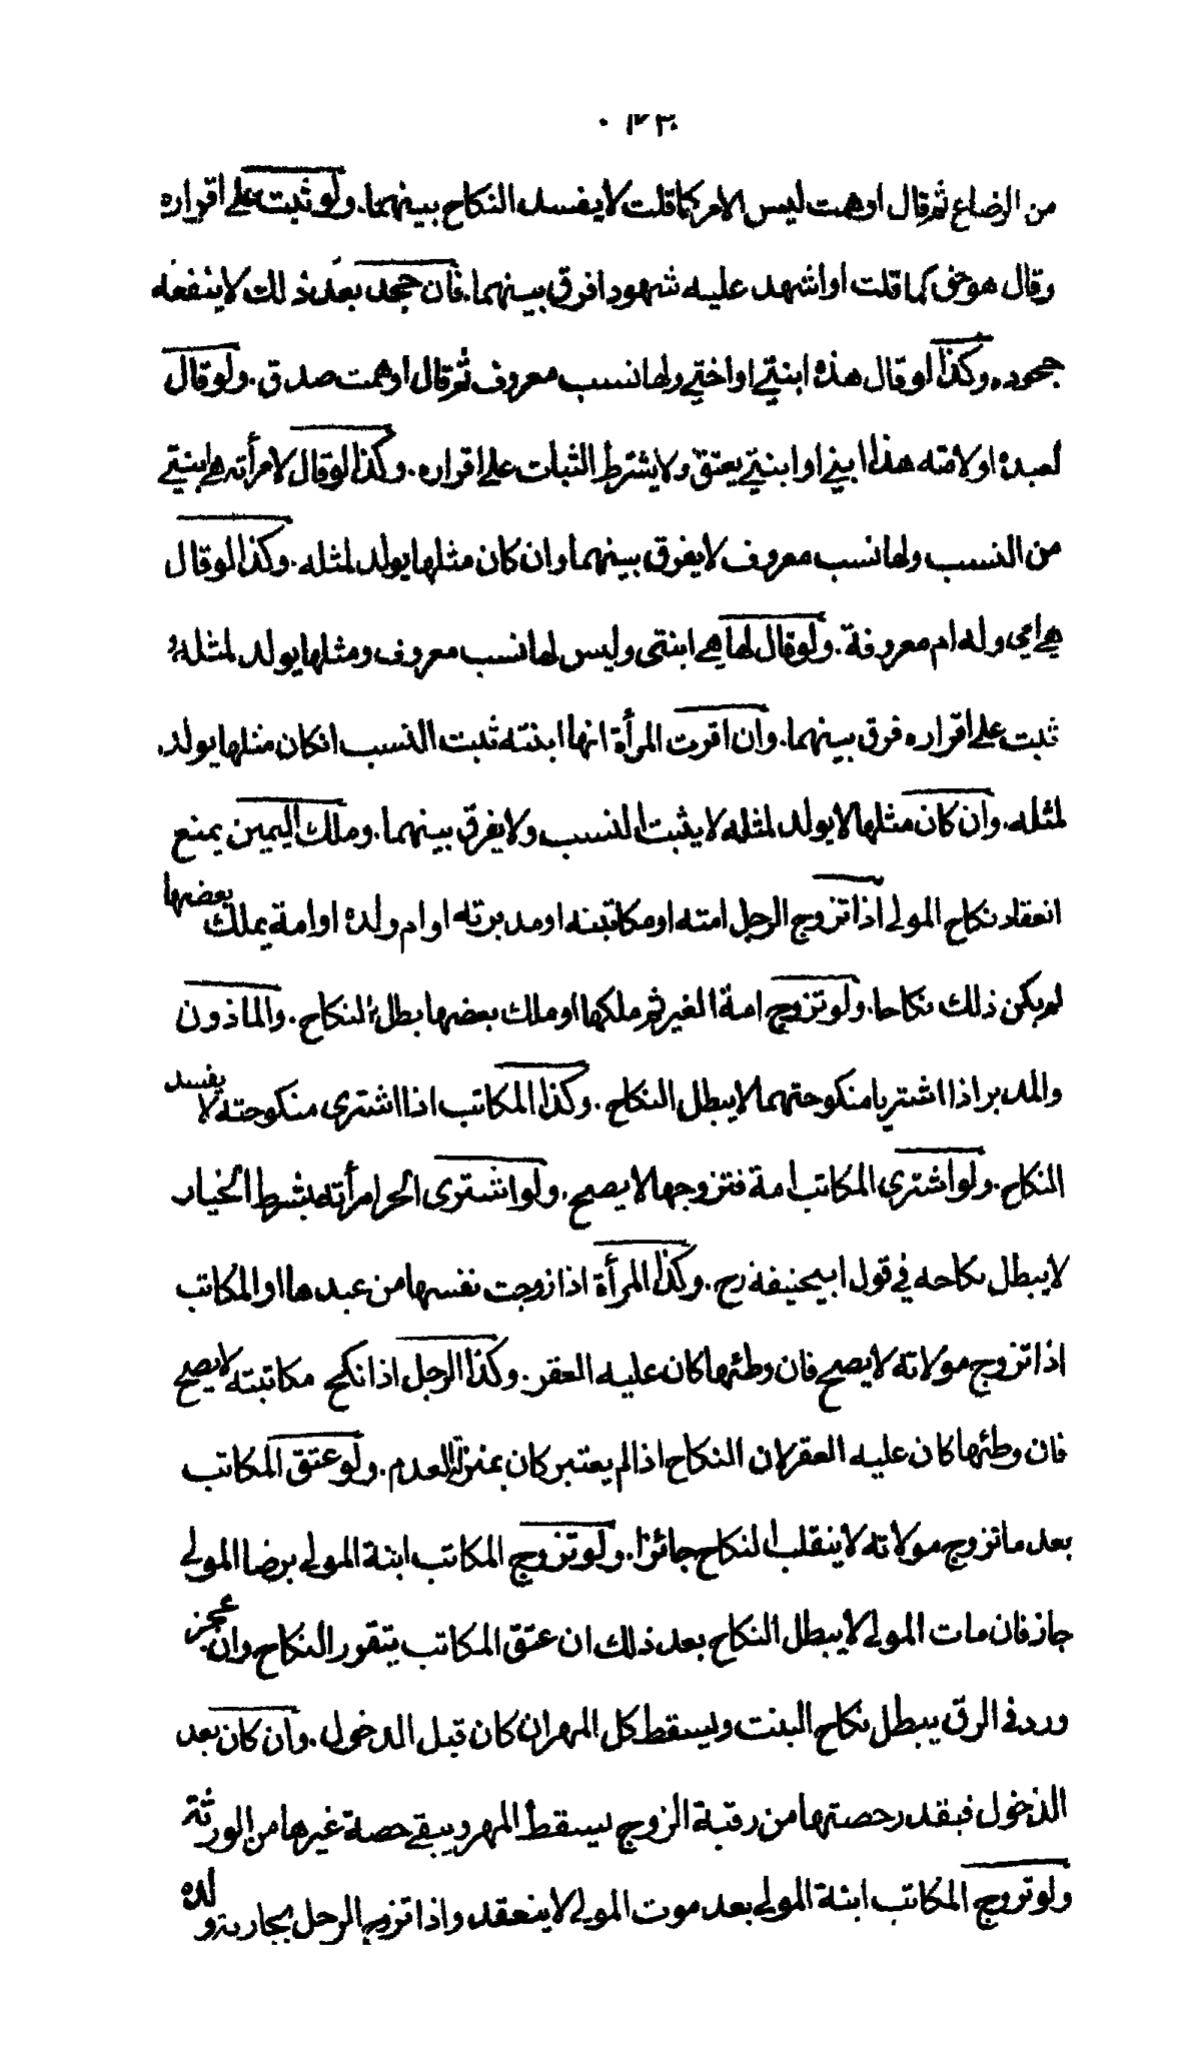 ١٢٣٠
من الرضاع ثم قال اوهمت ليس الامر كما قلت لا يفسد النكاح بينهما. ولو ثبت على اقراره
وقال هو حق كما قلت او اشهد عليه شهودا فرق بينهما. فان جحد بعد ذلك لا ينفعه
جحوده. وكذا لو قال هذه ابنتي او اختي ولها نسب معروف ثم قال اوهمت صدق. ولو قال
لعبده او لامته هذا ابني او ابنتي يعتق ولا يشترط الثبات على اقراره. وكذا لو قال لامرأته هي ابنتي
من النسب ولها نسب معروف لا يفرق بينهما وان كان مثلها يولد لمثله. وكذا لو قال
هي امي وله ام معروفة. ولو قال لها هي ابنتي وليس لها نسب معروف ومثلها يولد لمثله و
ثبت على اقراره فرق بينهما. وان اقرت المرأة انها ابنته ثبت النسب انكان مثلها يولد
لمثله. وان كان مثلها لا يولد لمثله لا يثبت النسب ولا يفرق بينهما. وملك اليمين يمنع
انعقاد نكاح المولى اذا تزوج الرجل امته او مكاتبته او مدبرته او ام ولده او امة يملك بعضها
لم يكن ذلك نكاحا. ولو تزوج امة الغير ثم ملكها او ملك بعضها بطل النكاح. والماذون
والمدبر اذا اشتريا منكوحتهما لا يبطل النكاح. وكذا المكاتب اذا اشترى منكوحته لا يفسد
النكاح. ولو اشترى المكاتب امة فتزوجها لا يصح. ولو اشترى الحر امرأته بشرط الخيار
لا يبطل نكاحه في قول ابيحنيفة رح. وكذا المرأة اذا زوجت نفسها من عبدها او المكاتب
اذا تزوج مولاته لا يصح فان وطئها كان عليه العقر. وكذا الرجل اذا نكح مكاتبته لا يصح
فان وطئها كان عليه العقر لان النكاح اذا لم يعتبر كان بمنزلة العدم. ولو عتق المكاتب
بعد ما تزوج مولاته لا ينقلب النكاح جائزا. ولو تزوج المكاتب ابنة المولى برضا المولى
جاز فان مات المولى لا يبطل النكاح بعد ذلك ان عتق المكاتب يتقرر النكاح وان عجز
ورد في الرق يبطل نكاح البنت ويسقط كل المهر ان كان قبل الدخول. وان كان بعد
الدخول فبقدر حصتها من رقبة الزوج يسقط المهر ويبقى حصة غيرها من الورثة
ولو تزوج المكاتب ابنة المولى بعد موت المولى لا ينعقد واذا تزوج الرجل بجارية ولده